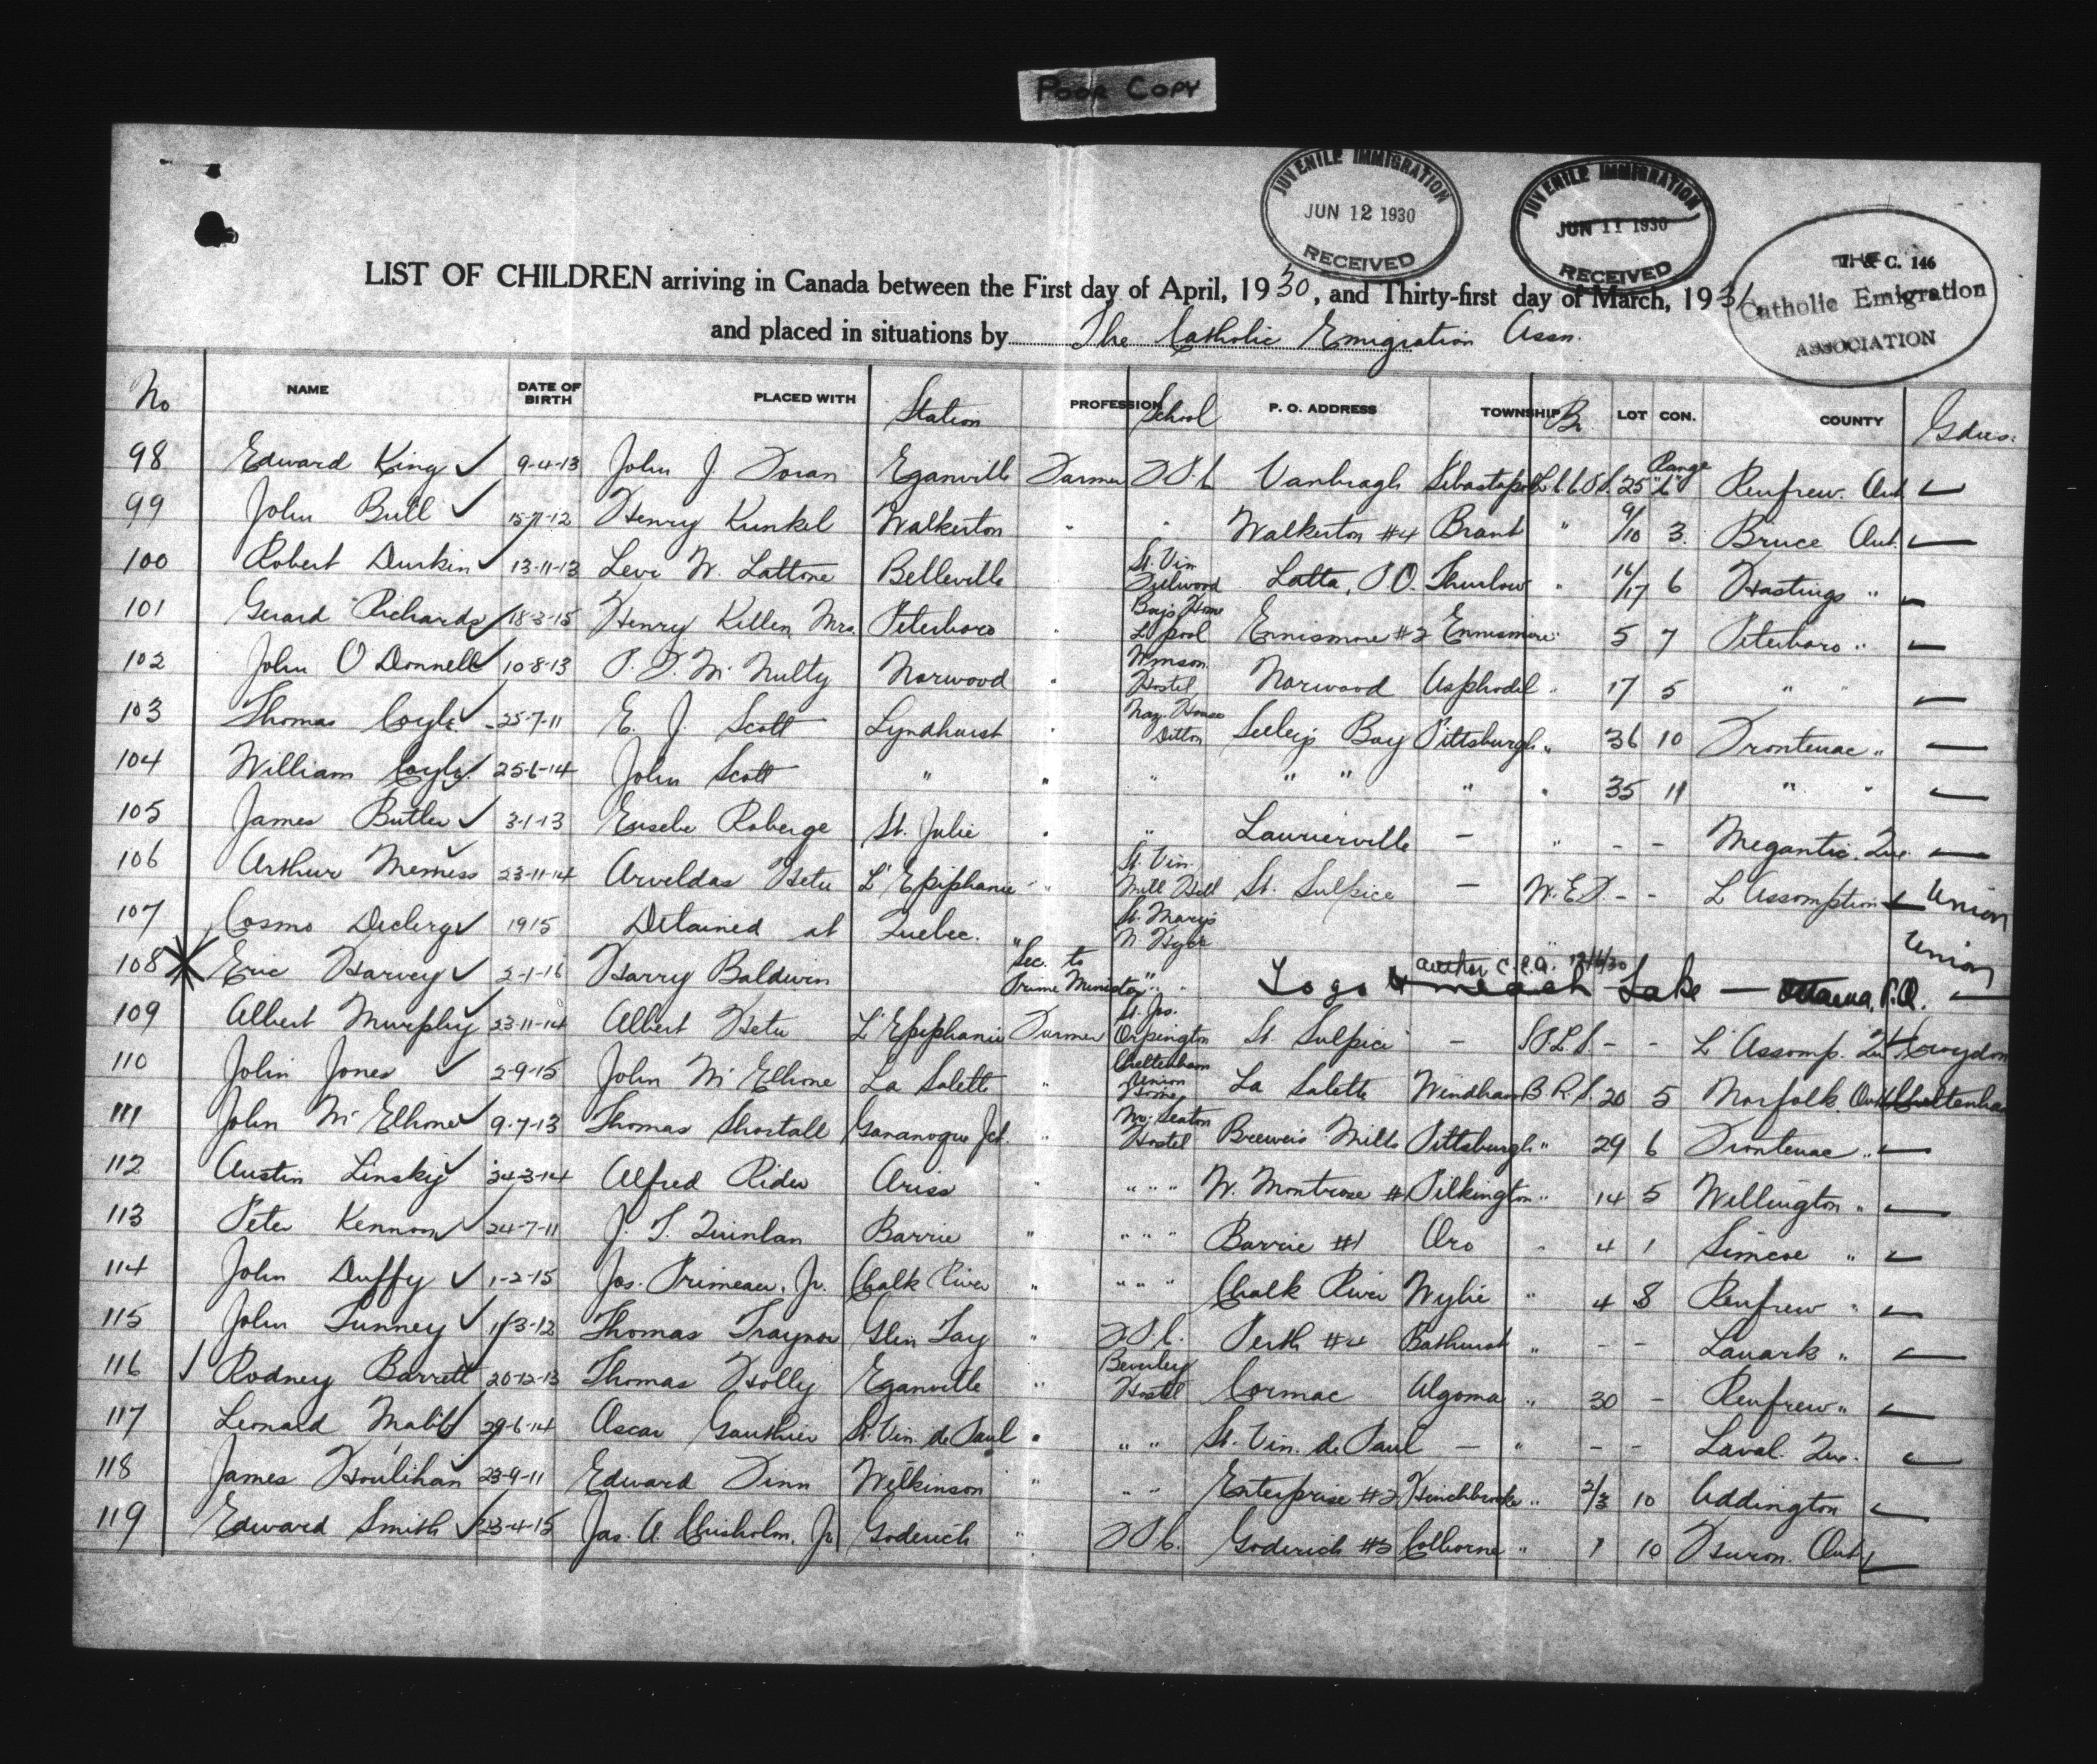 POOR COPY
JUVENILE IMMIGRATION
JUN 12 1930
RECEIVED
JUVENILE IMMIGRATION
JUN 11 1930
RECEIVED
C. 146
Catholic Emigration
ASSOCIATION
LIST OF CHILDREN arriving in Canada between the First day of April, 1930, and Thirty-first day of March, 1931
and placed in situations by The Catholic Emigration Assn.
No NAME DATE OF BIRTH PLACED WITH Station PROFESSION School P. O. ADDRESS TOWNSHIP LOT CON. COUNTY
98 Edward King ✓ 9-4-13 John J Doran Eganville Farmer Vanbrugh Sebastapol 25 Range "6" Renfrew. Ont
99 John Bull ✓ Henry Kunkel Walkerton " " Walkerton #4 Brant " 9/10 3. Bruce Ont.
100 Robert Durkin ✓ 13-11-13 Levi W. Lattone Belleville St. Vin Latta, P.O. Thurlow " 16/17 6 Hastings "
101 Gerard Richards ✓ 18-3-15 Henry Killen Mrs. Peterboro " Boys Home L'pool Ennismore #2 Ennismore 5 7 Peterboro "
102 John O Donnell ✓ 10-8-13 P. J. Mc Nulty Norwood " Hostel, Norwood Asphodel " 17 5 " "
103 Thomas Coyle ✓ 25-7-11 E. J. Scott Lyndhurst " Naz. House Ditton Seeleys Bay Pittsburgh " 36 10 Frontenac "
104 William Coyle ✓ 25-6-14 John Scott " " " " " " " 35 11 " "
105 James Butler ✓ 3-1-13 Eusebe Roberge St. Julie " " Laurierville - " - - Megantic. Que.
106 Arthur ✓ 23-11-14 Arveldas Hetu L'Epiphanie " St. Vin. Mill Hill St. Sulpice - - - L Assomption Union
107 Cosmo ✓ 1915 Detained at Quebec. St. Mary's N. Hyde
Union
108 Eric Harvey ✓ 2-1-16 Harry Baldwin Sec. to Prime Minister " To go Meach Lake — P.Q.
109 Albert Murphy ✓ 23-11-14 Albert Hetu L'Epiphanie Farmer St. Jos. Orpington St. Sulpice - - - L' Assomp. Croydon
110 John Jones ✓ 2-9-15 John Mc Elhone La Salette " Cheltenham Union Home La Salette Windham B.R.S. 20 5 Norfolk. Ont Cheltenham
111 John Mc Elhone ✓ 9-7-13 Thomas Shortall Gananoque Jct. " Hostel Brewers Mills Pittsburgh " 29 6 Frontenac "
112 Austin Linsky ✓ 24-3-14 Alfred Rider Ariss " " " " W. Montrose # Pilkington " 14 5 Wellington "
113 Peter Kennoon ✓ 24-7-11 J. T. Quinlan Barrie " " " " Barrie #1 Oro " 4 1 Simcoe "
114 John Duffy ✓ 1-2-15 Jos. Primeau. Jr. Chalk River " " " " Chalk River Wylie " 4 8 Renfrew "
115 John Tunney ✓ Thomas Traynor Glen Tay " Perth #4 Bathurst " - - Lanark "
116 ✓ Rodney Barrett 20-12-13 Thomas Holly Eganville " Beverley Hostel Cormac Algoma " 30 - Renfrew "
117 Leonard ✓ 29-6-14 Oscar Gauthier St. Vin. de Paul " " " St. Vin. de Paul - " - - Laval. Que.
118 James Houlihan 23-9-11 Edward Finn Wilkinson " " " Enterprise #2 Hinchbrooke " 2/3 10 Addington
119 Edward Smith ✓ 23-4-15 Jas. A. Chisholm. Jr Goderich " Goderich #5 Colborne " 1 10 Huron. Ont